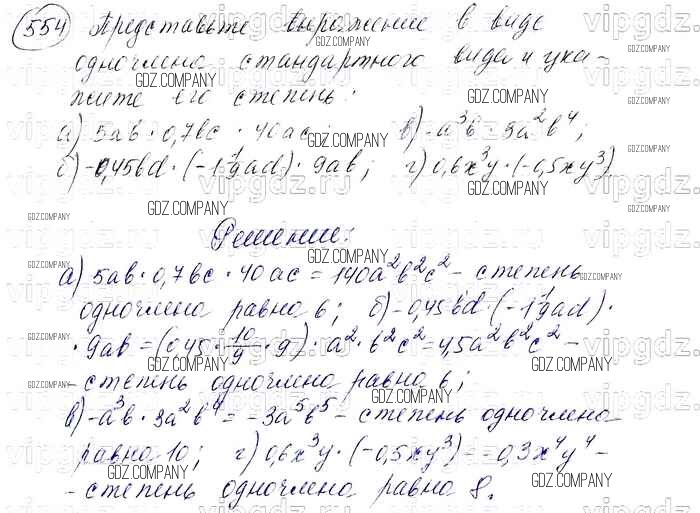 554 Представьте выражение в виде
одночлена стандартного вида и ука-
жите его степень:
а) 5ab · 0,7bc · 40ac; в) -a³b · 3a²b⁴;
б) -0,45bd · (-1 1/9 ad) · 9ab; г) 0,6x³y · (-0,5xy³)
Решение:
а) 5ab · 0,7bc · 40ac = 140a²b²c² - степень
одночлена равна 6; б) -0,45bd · (-1 1/9 ad) ·
· 9ab = (0,45 · 10/9 · 9) · a² · b²c² = 4,5a²b²c² -
- степень одночлена равна 6;
в) -a³b · 3a²b⁴ = -3a⁵b⁵ - степень одночлена
равна 10; г) 0,6x³y · (-0,5xy³) = -0,3x⁴y⁴ -
- степень одночлена равна 8.